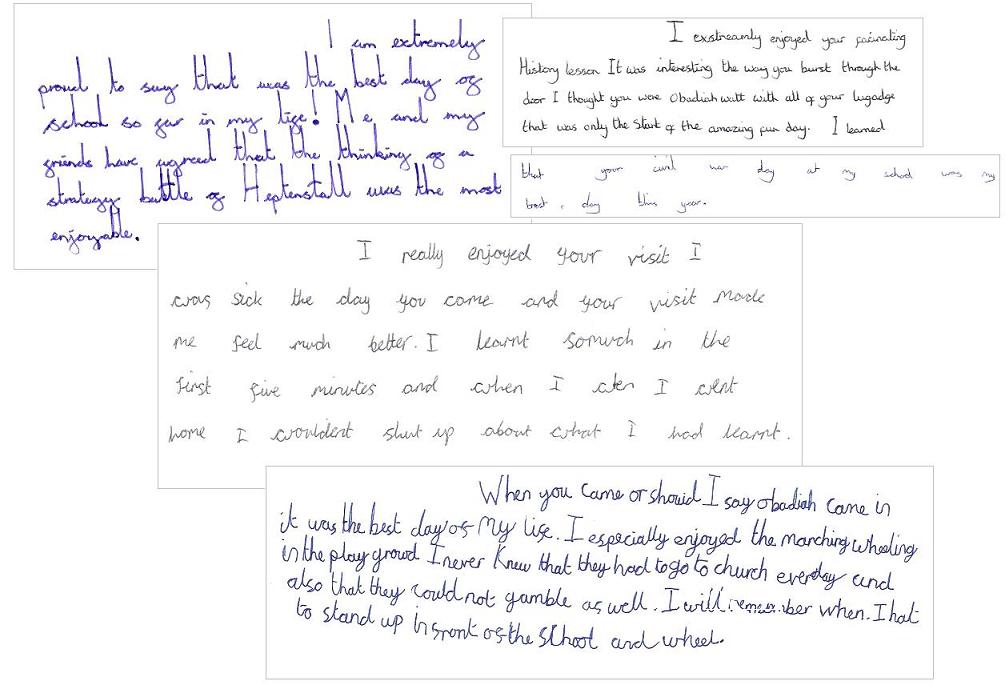 I am extremely
proud to say that was the best day of
school so far in my life! Me and my
friends have agreed that the thinking of a
strategy battle of Heptenstall was the most
enjoyable.
I exstreamly enjoyed your facinating
History lesson It was interesting the way you burst through the
door I thought you were Obadiah watt with all of your lugadge
that was only the start of the amazing fun day. I learned
that your civil war day at my school was my
best day this year.
I really enjoyed your visit I
was sick the day you come and your visit made
me feel much better. I learnt somuch in the
first five minutes and when I I went
home I wouldent shut up about what I had learnt.
When you came or should I say obadiah came in
it was the best day of My life. I especially enjoyed the marching wheeling
in the play growd I never knew that they had to go to church everyday and
also that they could not gamble as well. I will remember when I hat
to stand up in front of the school and wheel.